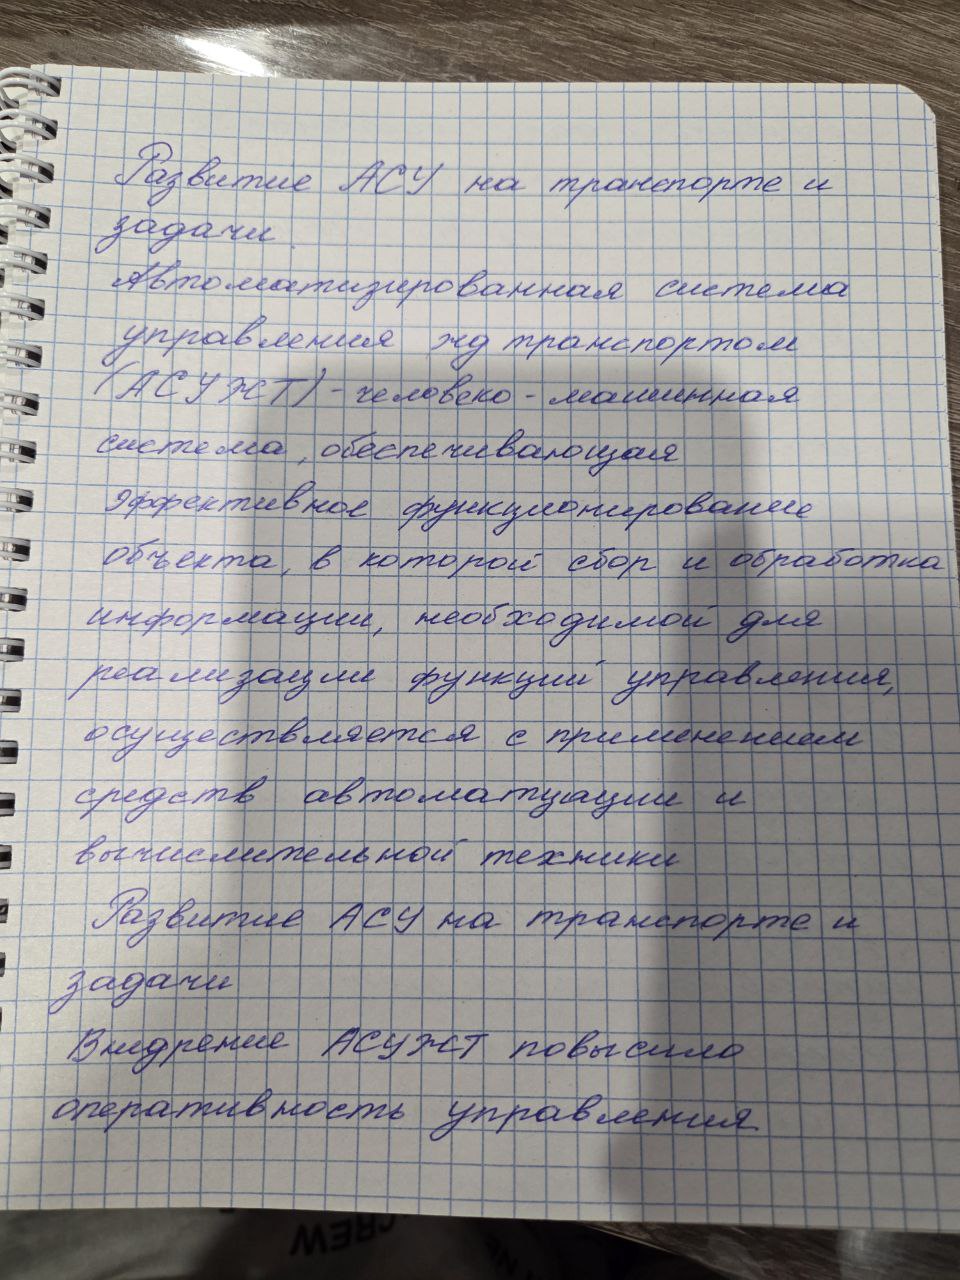 Развитие АСУ на транспорте и
задачи.
Автоматизированная система
управления жд транспортом
(АСУЖТ) - человеко - машинная
система, обеспечивающая
эффективное функционирование
объекта, в которой сбор и обработка
информации, необходимой для
реализации функций управления,
осуществляется с применением
средств автоматизации и
вычислительной техники
Развитие АСУ на транспорте и
задачи
Внедрение АСУЖТ повысило
оперативность управления
CREW